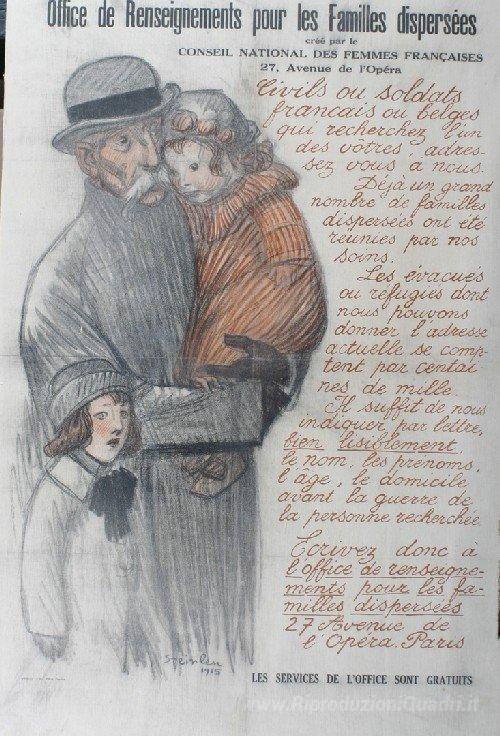 Office de Renseignements pour les Familles dispersées
créé par le
CONSEIL NATIONAL DES FEMMES FRANÇAISES
27, Avenue de l'Opéra
Civils ou soldats
français ou belges
qui recherchez l'un
des vôtres, adres-
sez vous à nous.
Déjà un grand
nombre de familles
dispersées ont été
réunies par nos
soins.
Les évacués
ou réfugiés dont
nous pouvons
donner l'adresse
actuelle se comp-
tent par centai
nes de mille.
Il suffit de nous
indiquer, par lettre,
bien lisiblement,
le nom, les prénoms,
l'âge, le domicile
avant la guerre de
la personne recherchée.
Ecrivez donc à
l'office de renseigne-
ments pour les fa-
milles dispersées
27 Avenue de
l'Opéra. Paris
Steinlen
1915
LES SERVICES DE L'OFFICE SONT GRATUITS
www.RiproduzioniQuadri.it